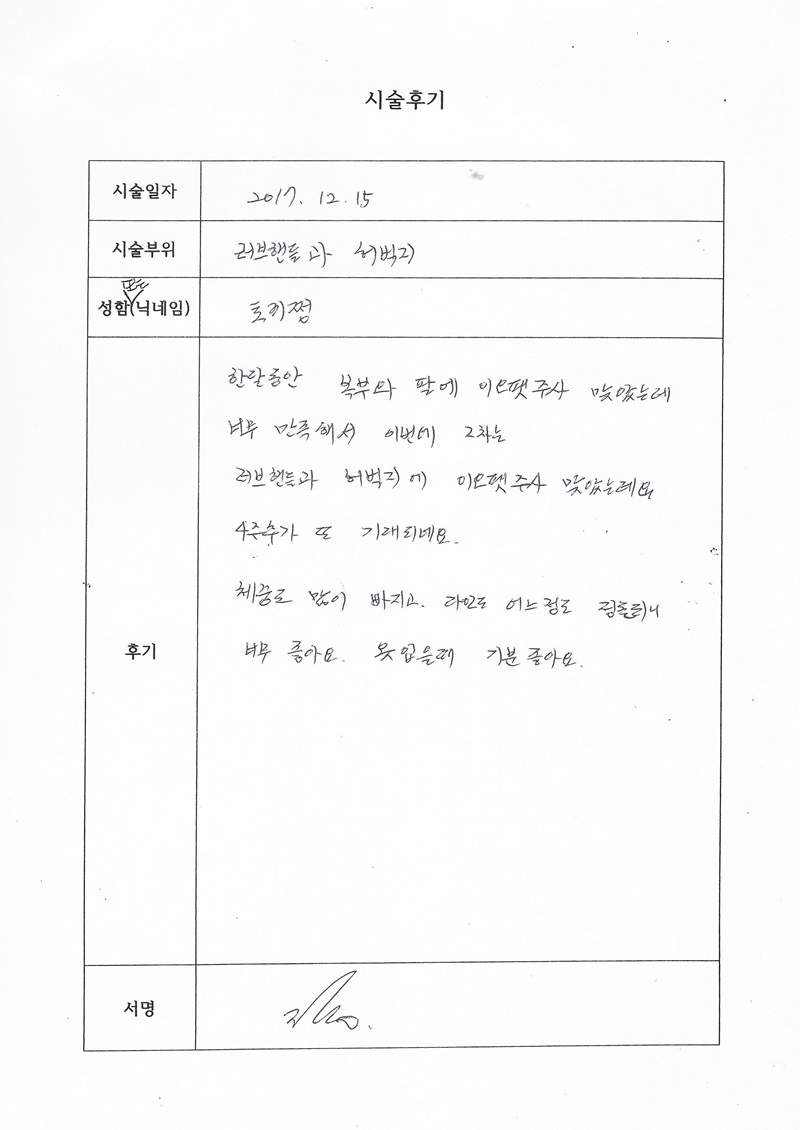 시술후기
시술일자 2017. 12. 15
시술부위 러브핸들과 허벅지
또는
성함(닉네임) 토끼쩜
한달동안 복부와 팔에 이오팻주사 맞았는데
너무 만족해서 이번에 2차는
러브핸들과 허벅지에 이오팻주사 맞았는데요
4주후가 또 기대되네요.
체중도 많이 빠지고. 라인도 어느정도 정돈되니
후기 너무 좋아요. 옷 입을때 기분 좋아요.
서명